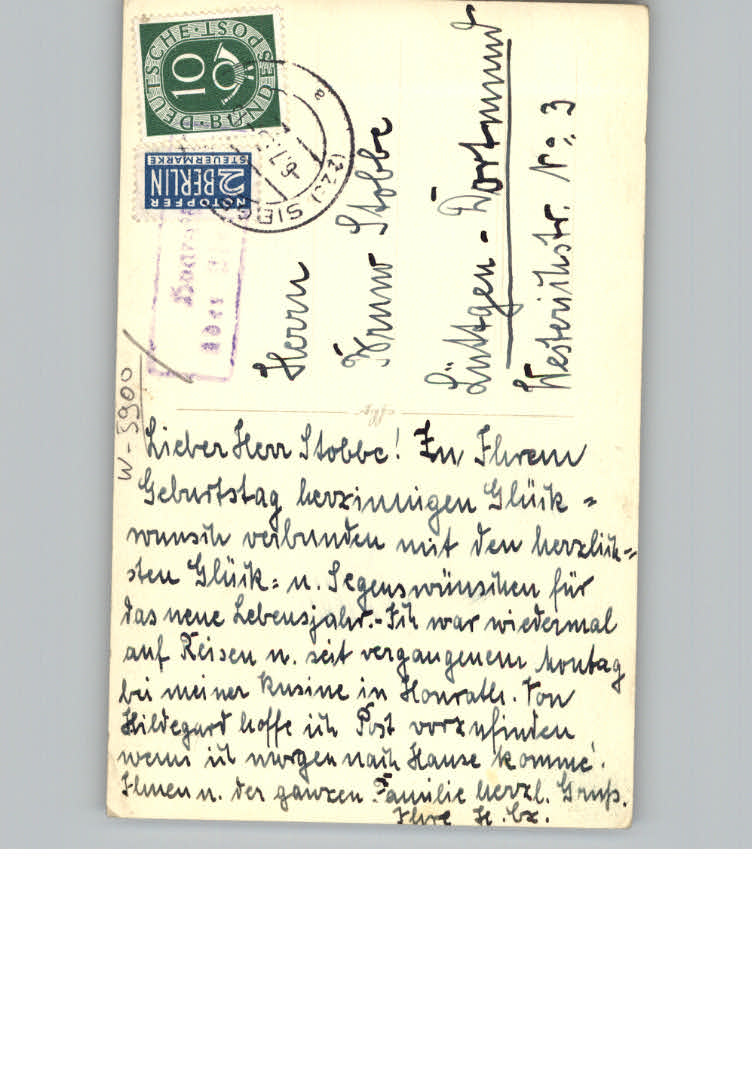 DEUTSCHE · BUNDESPOST
10
NOTOPFER
2 BERLIN
STEUERMARKE
(22c) SIEG
-6.7.5
Honrat
über
W-5900
Herrn
Bruno Stobbe
Lüttgen-Dortmund
Westerichstr. No. 3
Lieber Herr Stobbe! Zu Ihrem
Geburtstag herzinnigen Glück=
wunsch verbunden mit den herzlich=
sten Glück= u. Segenswünschen für
das neue Lebensjahr.- Ich war wiedermal
auf Reisen u. seit vergangenem Montag
bei meiner Kusine in Honrath. Von
Hildegard hoffe ich Post vorzufinden
wenn ich morgen nach Hause komme.
Ihnen u. der ganzen Familie herzl. Gruß.
Ihre